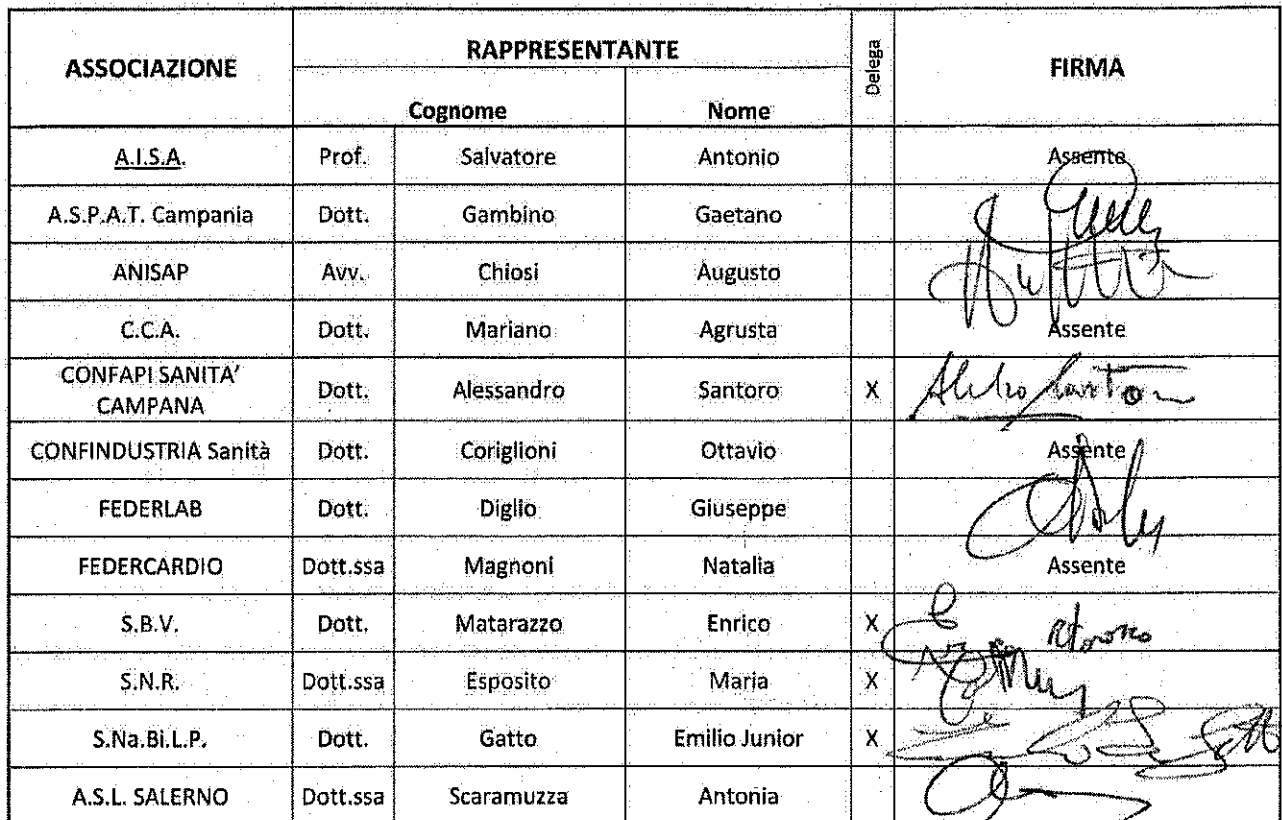 ASSOCIAZIONE RAPPRESENTANTE Delega FIRMA
Cognome Nome
A.I.S.A. Prof. Salvatore Antonio Assente
A.S.P.A.T. Campania Dott. Gambino Gaetano
ANISAP Avv. Chiosi Augusto
C.C.A. Dott. Mariano Agrusta Assente
CONFAPI SANITA'
CAMPANA Dott. Alessandro Santoro X
CONFINDUSTRIA Sanità Dott. Coriglioni Ottavio Assente
FEDERLAB Dott. Diglio Giuseppe
FEDERCARDIO Dott.ssa Magnoni Natalia Assente
S.B.V. Dott. Matarazzo Enrico X
S.N.R. Dott.ssa Esposito Maria X
S.Na.Bi.L.P. Dott. Gatto Emilio Junior X
A.S.L. SALERNO Dott.ssa Scaramuzza Antonia